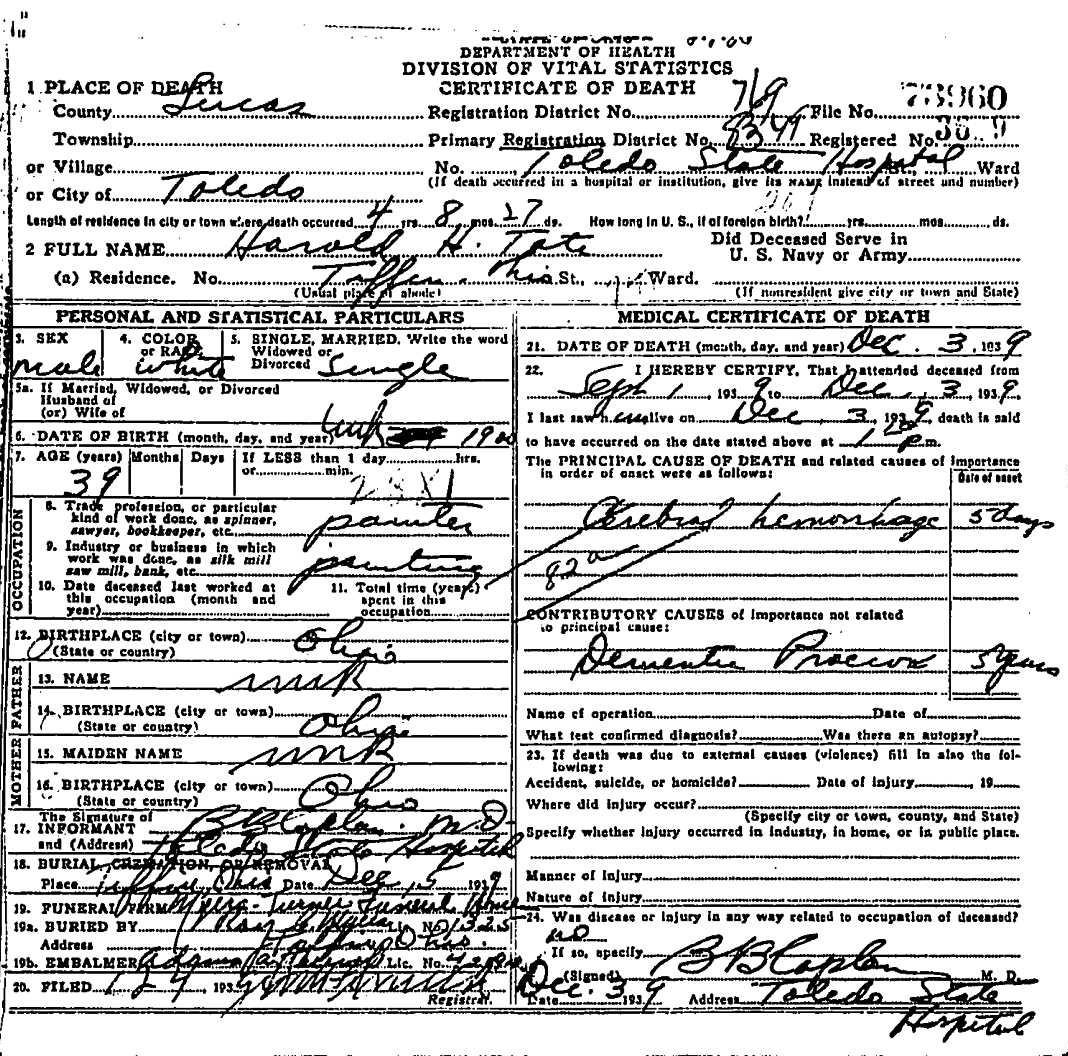 DEPARTMENT OF HEALTH
DIVISION OF VITAL STATISTICS
CERTIFICATE OF DEATH
1 PLACE OF DEATH
County Lucas Registration District No. 769 File No. 73960
Township Primary Registration District No. 8349 Registered No.
or Village No. Toledo State Hospital St., Ward
(If death occurred in a hospital or institution, give its NAME instead of street and number)
or City of Toledo
Length of residence in city or town where death occurred 4 yrs. 8 mos. 27 ds. How long in U. S., if of foreign birth? yrs. mos. ds.
2 FULL NAME Harold H. Tate Did Deceased Serve in U. S. Navy or Army
(a) Residence. No. Tiffin, Ohio St., Ward.
(Usual place of abode) (If nonresident give city or town and State)
PERSONAL AND STATISTICAL PARTICULARS
3. SEX male
4. COLOR or RACE white
5. SINGLE, MARRIED, Write the word Widowed or Divorced Single
5a. If Married, Widowed, or Divorced
Husband of
(or) Wife of
6. DATE OF BIRTH (month, day, and year) unk 1900
7. AGE (years) Months Days If LESS than 1 day hrs. or min.
39
OCCUPATION
8. Trade, profession, or particular kind of work done, as spinner, sawyer, bookkeeper, etc. painter
9. Industry or business in which work was done, as silk mill saw mill, bank, etc. painting
10. Date deceased last worked at this occupation (month and year)
11. Total time (years) spent in this occupation
12. BIRTHPLACE (city or town)
(State or country) Ohio
FATHER
13. NAME unk
14. BIRTHPLACE (city or town)
(State or country) Ohio
MOTHER
15. MAIDEN NAME unk
16. BIRTHPLACE (city or town)
(State or country) Ohio
The Signature of
17. INFORMANT B B Caplan. M.D.
and (Address) Toledo State Hospital
18. BURIAL, CREMATION, OR REMOVAL
Place Tiffin, Ohio Date Dec 5 1939
19. FUNERAL FIRM Myers-Turner Funeral Home
19a. BURIED BY Lic. No.
Address Ohio.
19b. EMBALMER Lic. No.
20. FILED 1939
Registrar.
MEDICAL CERTIFICATE OF DEATH
21. DATE OF DEATH (month, day, and year) Dec. 3, 1939
22. I HEREBY CERTIFY, That I attended deceased from
Sept 1, 1939 to Dec. 3 1939
I last saw him alive on Dec 3, 1939, death is said
to have occurred on the date stated above at p.m.
The PRINCIPAL CAUSE OF DEATH and related causes of importance
in order of onset were as follows: Date of onset
Cerebral hemorrhage 5 days
82a
CONTRIBUTORY CAUSES of importance not related
to principal cause:
Dementia Praecox 5 years
Name of operation Date of
What test confirmed diagnosis? Was there an autopsy?
23. If death was due to external causes (violence) fill in also the following:
Accident, suicide, or homicide? Date of injury, 19
Where did injury occur?
(Specify city or town, county, and State)
Specify whether injury occurred in industry, in home, or in public place.
Manner of injury
Nature of injury
24. Was disease or injury in any way related to occupation of deceased?
no
If so, specify
(Signed) B B Caplan M. D.
Date Dec. 3 1939 Address Toledo State
Hospital